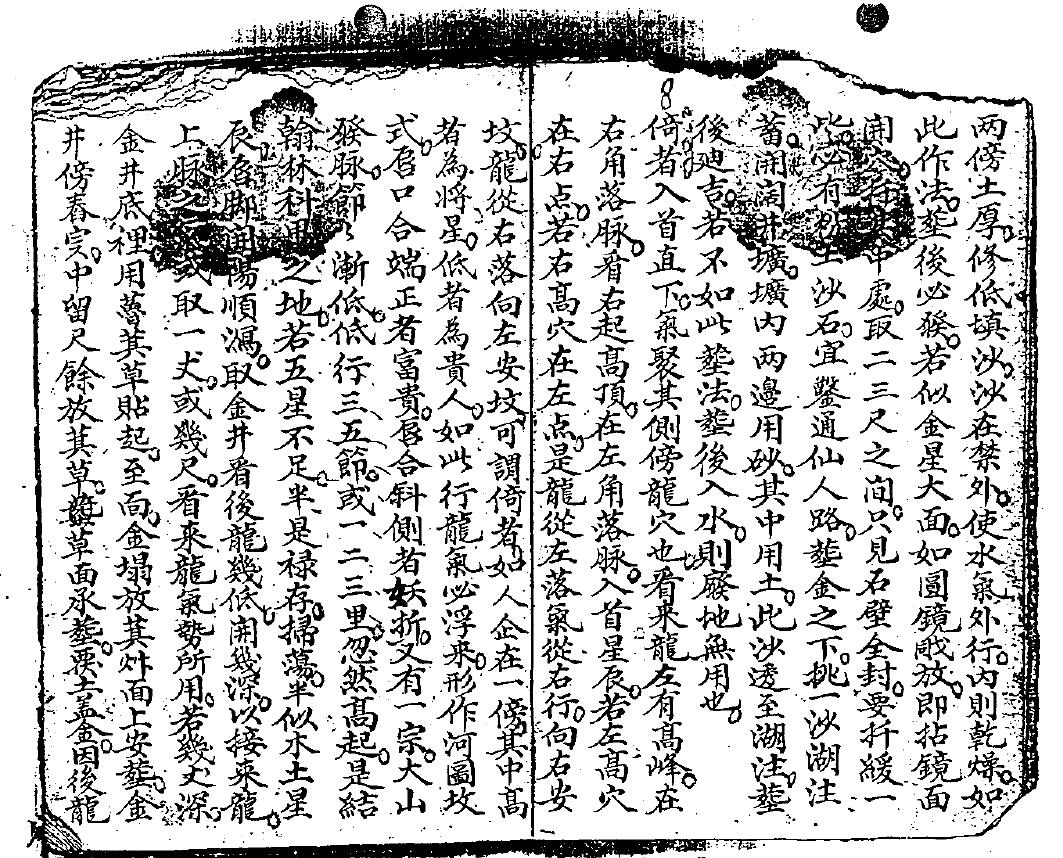 8
两傍土厚修低填沙沙在禁外使水氣外行内則乾燥如
此作法塟後必發若似金星大面如圓鏡戙放即拈鏡面
開行其中處取二三尺之间只見石壁全封要扦緩一
此必有土沙石宜鑿通仙人路塟金之下挑一沙湖注
蓄開濶井壙壙内两邊用砂其中用土此沙透至湖注塟
後迪吉若不如此塟法塟後入水則廢地無用也
倚者入首直下氣聚其側傍龍穴也看来龍左有髙峰在
右角落脉看右起髙頂在左角落脉入首星辰若左髙穴
在右点若右髙穴在左点是龍從左落氣從右行向右安
坟龍從右落向左安坟可謂倚者如人企在一傍其中髙
者為將星低者為貴人如此行龍氣必浮来形作河圖坟
式唇口合端正者富貴唇合斜側者妖折又有一宗大山
發脉節〻漸低低行三五節或一二三里忽然髙起是結
翰林科甲之地若五星不足半是禄存掃蕩半似水土星
辰唇脚開陽順瀉取金井看後龍幾低開幾深以接来龍
上脉之氣或取一丈或幾尺看来龍氣勢所用若幾丈深
金井底裡用萁草貼起至面金塌放萁炓面上安塟金
井傍舂实中留尺餘放萁草草面承塟要土盖金因後龍